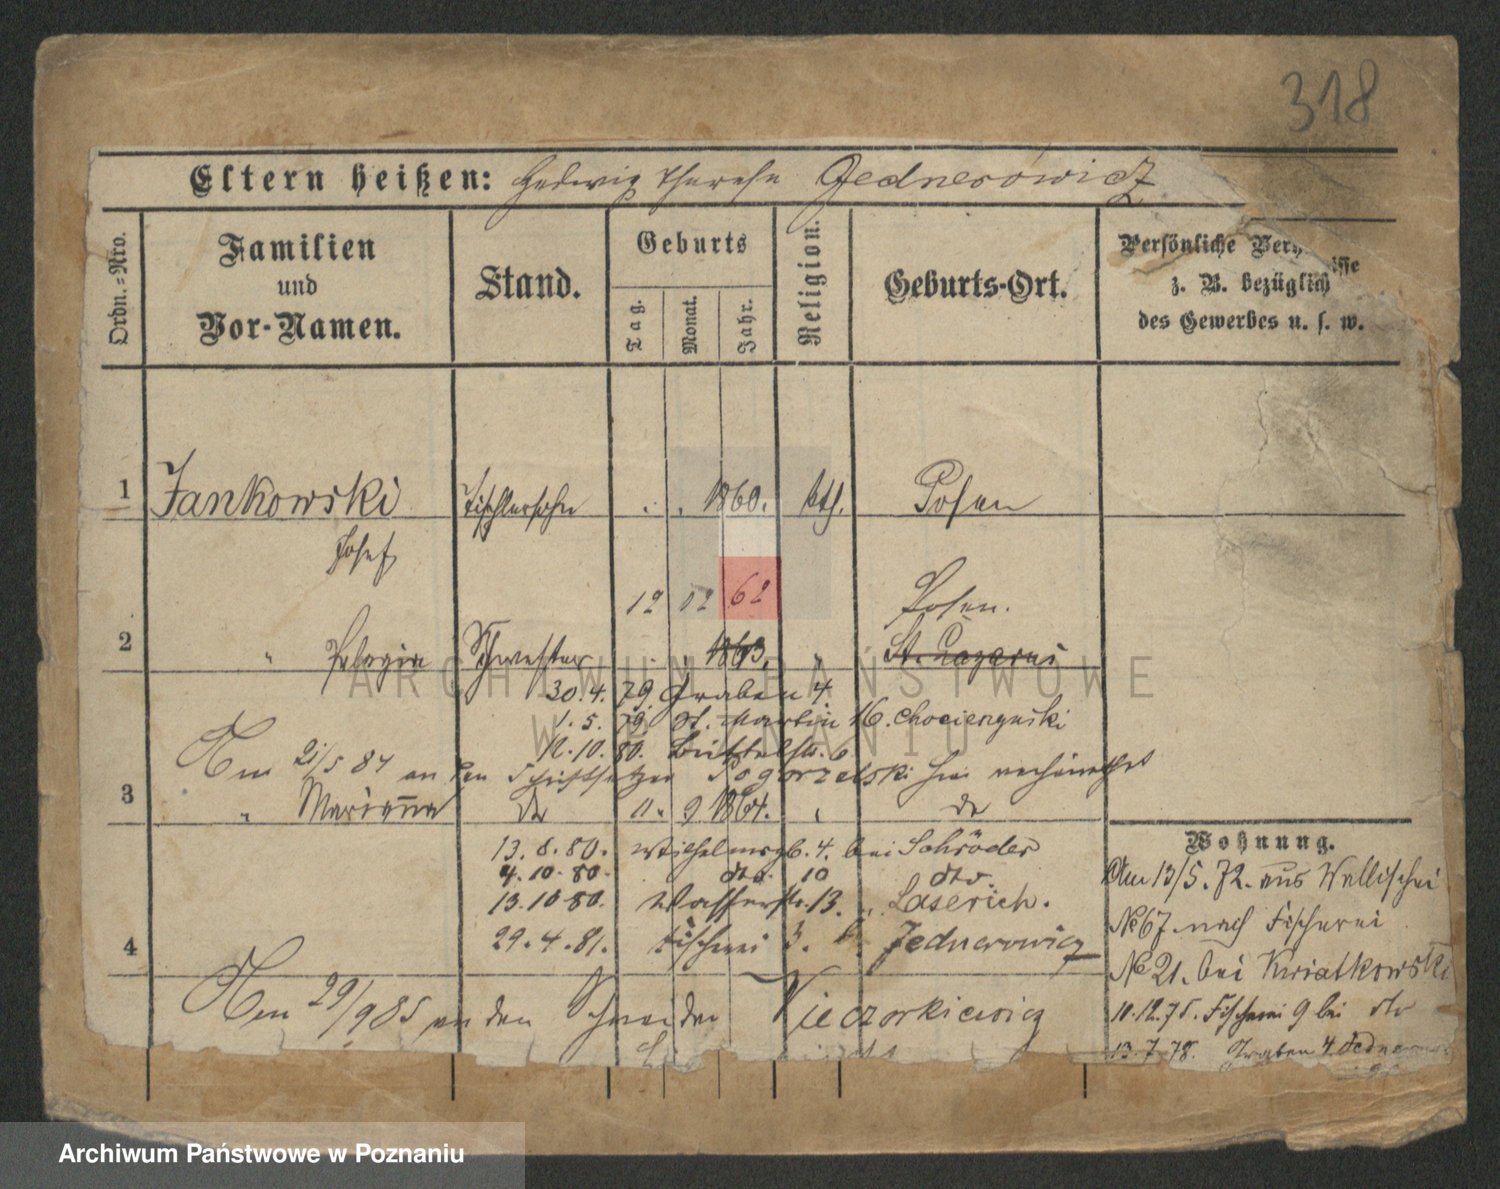 318
Eltern heißen: Hedwig Therese Jednerowicz
Ordn.=Nro.
Familien
und
Vor-Namen.
Stand.
Geburts
Tag.
Monat.
Jahr.
Religion.
Geburts-Ort.
Persönliche Verhältnisse
z. B. bezüglich
des Gewerbes u. s. w.
1 Jankowski Tischlersohn . . 1860. kth. Posen
Josef
12 02 62 Posen.
2 " Pelagia Schwester . . 1863. " St. Lazarus
30.4.79. Graben 4.
1.5.79. St. Martin 16. Chocierzynski
12.10.80. Büttelstr. 6
Am 21/5 84 an den Schriftsetzer Pogorzelski hier verheirathet
3 " Marianna do 11. 9 1864. " do
13.8.80. Wilhelmspl. 4. bei Schröder
4.10.80. dto. 10 dto.
13.10.80. Wasserstr. 13. " Laserich.
4 29.4.81. Fischerei 3. b. Jednerowicz
Am 29/9 85 an den Schneider Wieczorkiewicz
Wohnung.
Am 13/5.72. aus Wallischei
No 67. nach Fischerei
No 21. bei Kwiatkowski
10.12.75. Fischerei 9 bei dto
13.7.78. Graben 4.
ARCHIWUM PAŃSTWOWE
W POZNANIU
Archiwum Państwowe w Poznaniu